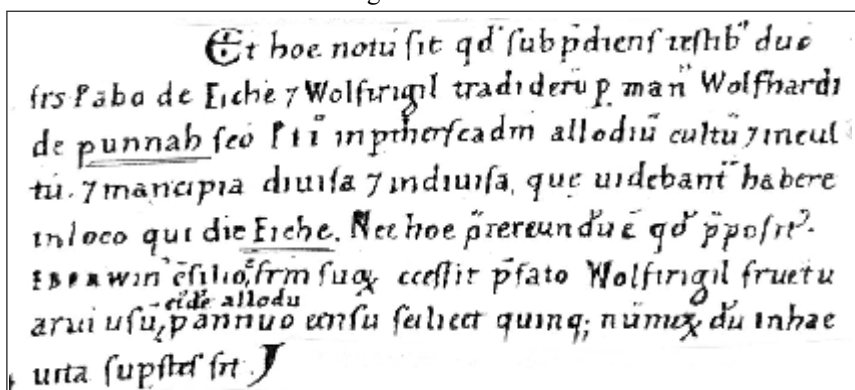 Et hoc notū sit qđ sub p̄dictis testib᷒ duo
frs Pabo de Eiche ⁊ Wolftrigil tradiderū p man᷒ Wolfhardi
de punnah sc̄o allodiū cultū ⁊ incul
tū. ⁊ mancipia diuisa ⁊ indiuisa, que uidebant᷒ habere
in loco qui dic̄ Eiche. Nec hoc p̄tereundū ē qđ p̄posit᷒
frm̄ suoꝝ p̄fato Wolftrigil fructu
eidē allodii
arui usū, p annuo censu scilicet quinq; nūmoꝝ dū in hac
uita supstes sit